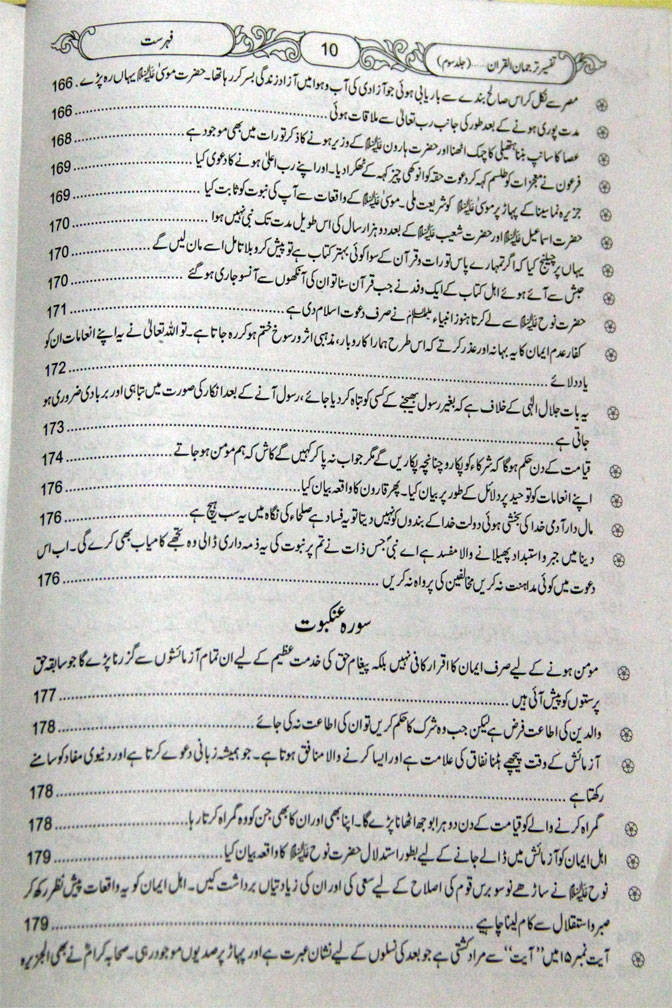 تفسیر ترجمان القرآن ..... (جلد سوم)
10
فہرست
مصر سے نکل کر اس صالح بندے سے باریابی ہوئی جو آزادی کی آب و ہوا میں آزاد زندگی بسر کر رہا تھا۔ حضرت موسیٰ علیہ السلام یہاں رہ پڑے۔ 166
مدت پوری ہونے کے بعد طور کی جانب رب تعالیٰ سے ملاقات ہوئی 166
عصا کا سانپ بننا ہتھیلی کا چمک اٹھنا اور حضرت ہارون علیہ السلام کے وزیر ہونے کا ذکر تورات میں بھی موجود ہے 168
فرعون نے معجزات کو طلسم کہہ کر دعوت حقہ کو انوکھی چیز کہہ کے ٹھکرا دیا۔ اور اپنے رب اعلیٰ ہونے کا دعوی کیا 169
جزیرہ نما سینا کے پہاڑ پر موسیٰ علیہ السلام کو شریعت ملی۔ موسیٰ علیہ السلام کے واقعات سے آپ کی نبوت کو ثابت کیا 169
حضرت اسماعیل علیہ السلام اور حضرت شعیب علیہ السلام کے بعد دو ہزار سال کی اس طویل مدت تک نبی نہیں ہوا 170
یہاں پر چیلنج کیا کہ اگر تمہارے پاس تورات و قرآن کے سوا کوئی بہتر کتاب ہے تو پیش کرو بلا تامل اسے مان لیں گے 170
حبش سے آئے ہوئے اہل کتاب کے ایک وفد نے جب قرآن سنا تو ان کی آنکھوں سے آنسو جاری ہو گئے 170
حضرت نوح علیہ السلام سے لے کر تا ہنوز انبیاء علیہم السلام نے صرف دعوت اسلام دی ہے 171
کفار عدم ایمان کا یہ بہانہ اور عذر کرتے کہ اس طرح ہمارا کاروبار، مذہبی اثر و رسوخ ختم ہو کر رہ جاتا ہے۔ تو اللہ تعالیٰ نے یہ اپنے انعامات ان کو
یاد دلائے 172
یہ بات جلال الٰہی کے خلاف ہے کہ بغیر رسول بھیجنے کے کسی کو تباہ کر دیا جائے، رسول آنے کے بعد انکار کی صورت میں تباہی اور بربادی ضروری ہو
جاتی ہے 173
قیامت کے دن حکم ہوگا کہ شرکاء کو پکارو چنانچہ پکاریں گے مگر جواب نہ پا کر کہیں گے کاش کہ ہم مومن ہو جاتے 174
اپنے انعامات کو توحید پر دلائل کے طور پر بیان کیا۔ پھر قارون کا واقعہ بیان کیا 176
مال دار آدمی خدا کی بخشی ہوئی دولت خدا کے بندوں کو نہیں دیتا تو یہ فساد ہے صلحاء کی نگاہ میں یہ سب ہیچ ہے 176
دنیا میں جبر و استبداد پھیلانے والا مفسد ہے اے نبی جس ذات نے تم پر نبوت کی یہ ذمہ داری ڈالی وہ تجھے کامیاب بھی کرے گی۔ اب اس
دعوت میں کوئی مداہنت نہ کریں مخالفین کی پرواہ نہ کریں 176
سورہ عنکبوت
مومن ہونے کے لیے صرف ایمان کا اقرار کافی نہیں بلکہ پیغام حق کی خدمت عظیم کے لیے ان تمام آزمائشوں سے گزرنا پڑے گا جو سابقہ حق
پرستوں کو پیش آئی ہیں 177
والدین کی اطاعت فرض ہے لیکن جب وہ شرک کا حکم کریں تو ان کی اطاعت نہ کی جائے 178
آزمائش کے وقت پیچھے ہٹنا نفاق کی علامت ہے اور ایسا کرنے والا منافق ہوتا ہے۔ جو ہمیشہ زبانی دعوے کرتا ہے اور دنیوی مفاد کو سامنے
رکھتا ہے 178
گمراہ کرنے والے کو قیامت کے دن دوہرا بوجھ اٹھانا پڑے گا۔ اپنا بھی اور ان کا بھی جن کو وہ گمراہ کرتا رہا 178
اہل ایمان کو آزمائش میں ڈالے جانے کے لیے بطور استدلال حضرت نوح علیہ السلام کا واقعہ بیان کیا 179
نوح علیہ السلام نے ساڑھے نو سو برس قوم کی اصلاح کے لیے سعی کی اور ان کی زیادتیاں برداشت کیں۔ اہل ایمان کو یہ واقعات پیش نظر رکھ کر
صبر و استقلال سے کام لینا چاہیے 179
آیت نمبر ۱۵ میں ”آیت“ سے مراد کشتی ہے جو بعد کی نسلوں کے لیے نشان عبرت ہے اور پہاڑ پر صدیوں موجود رہی۔ صحابہ کرام نے بھی الجزیرہ